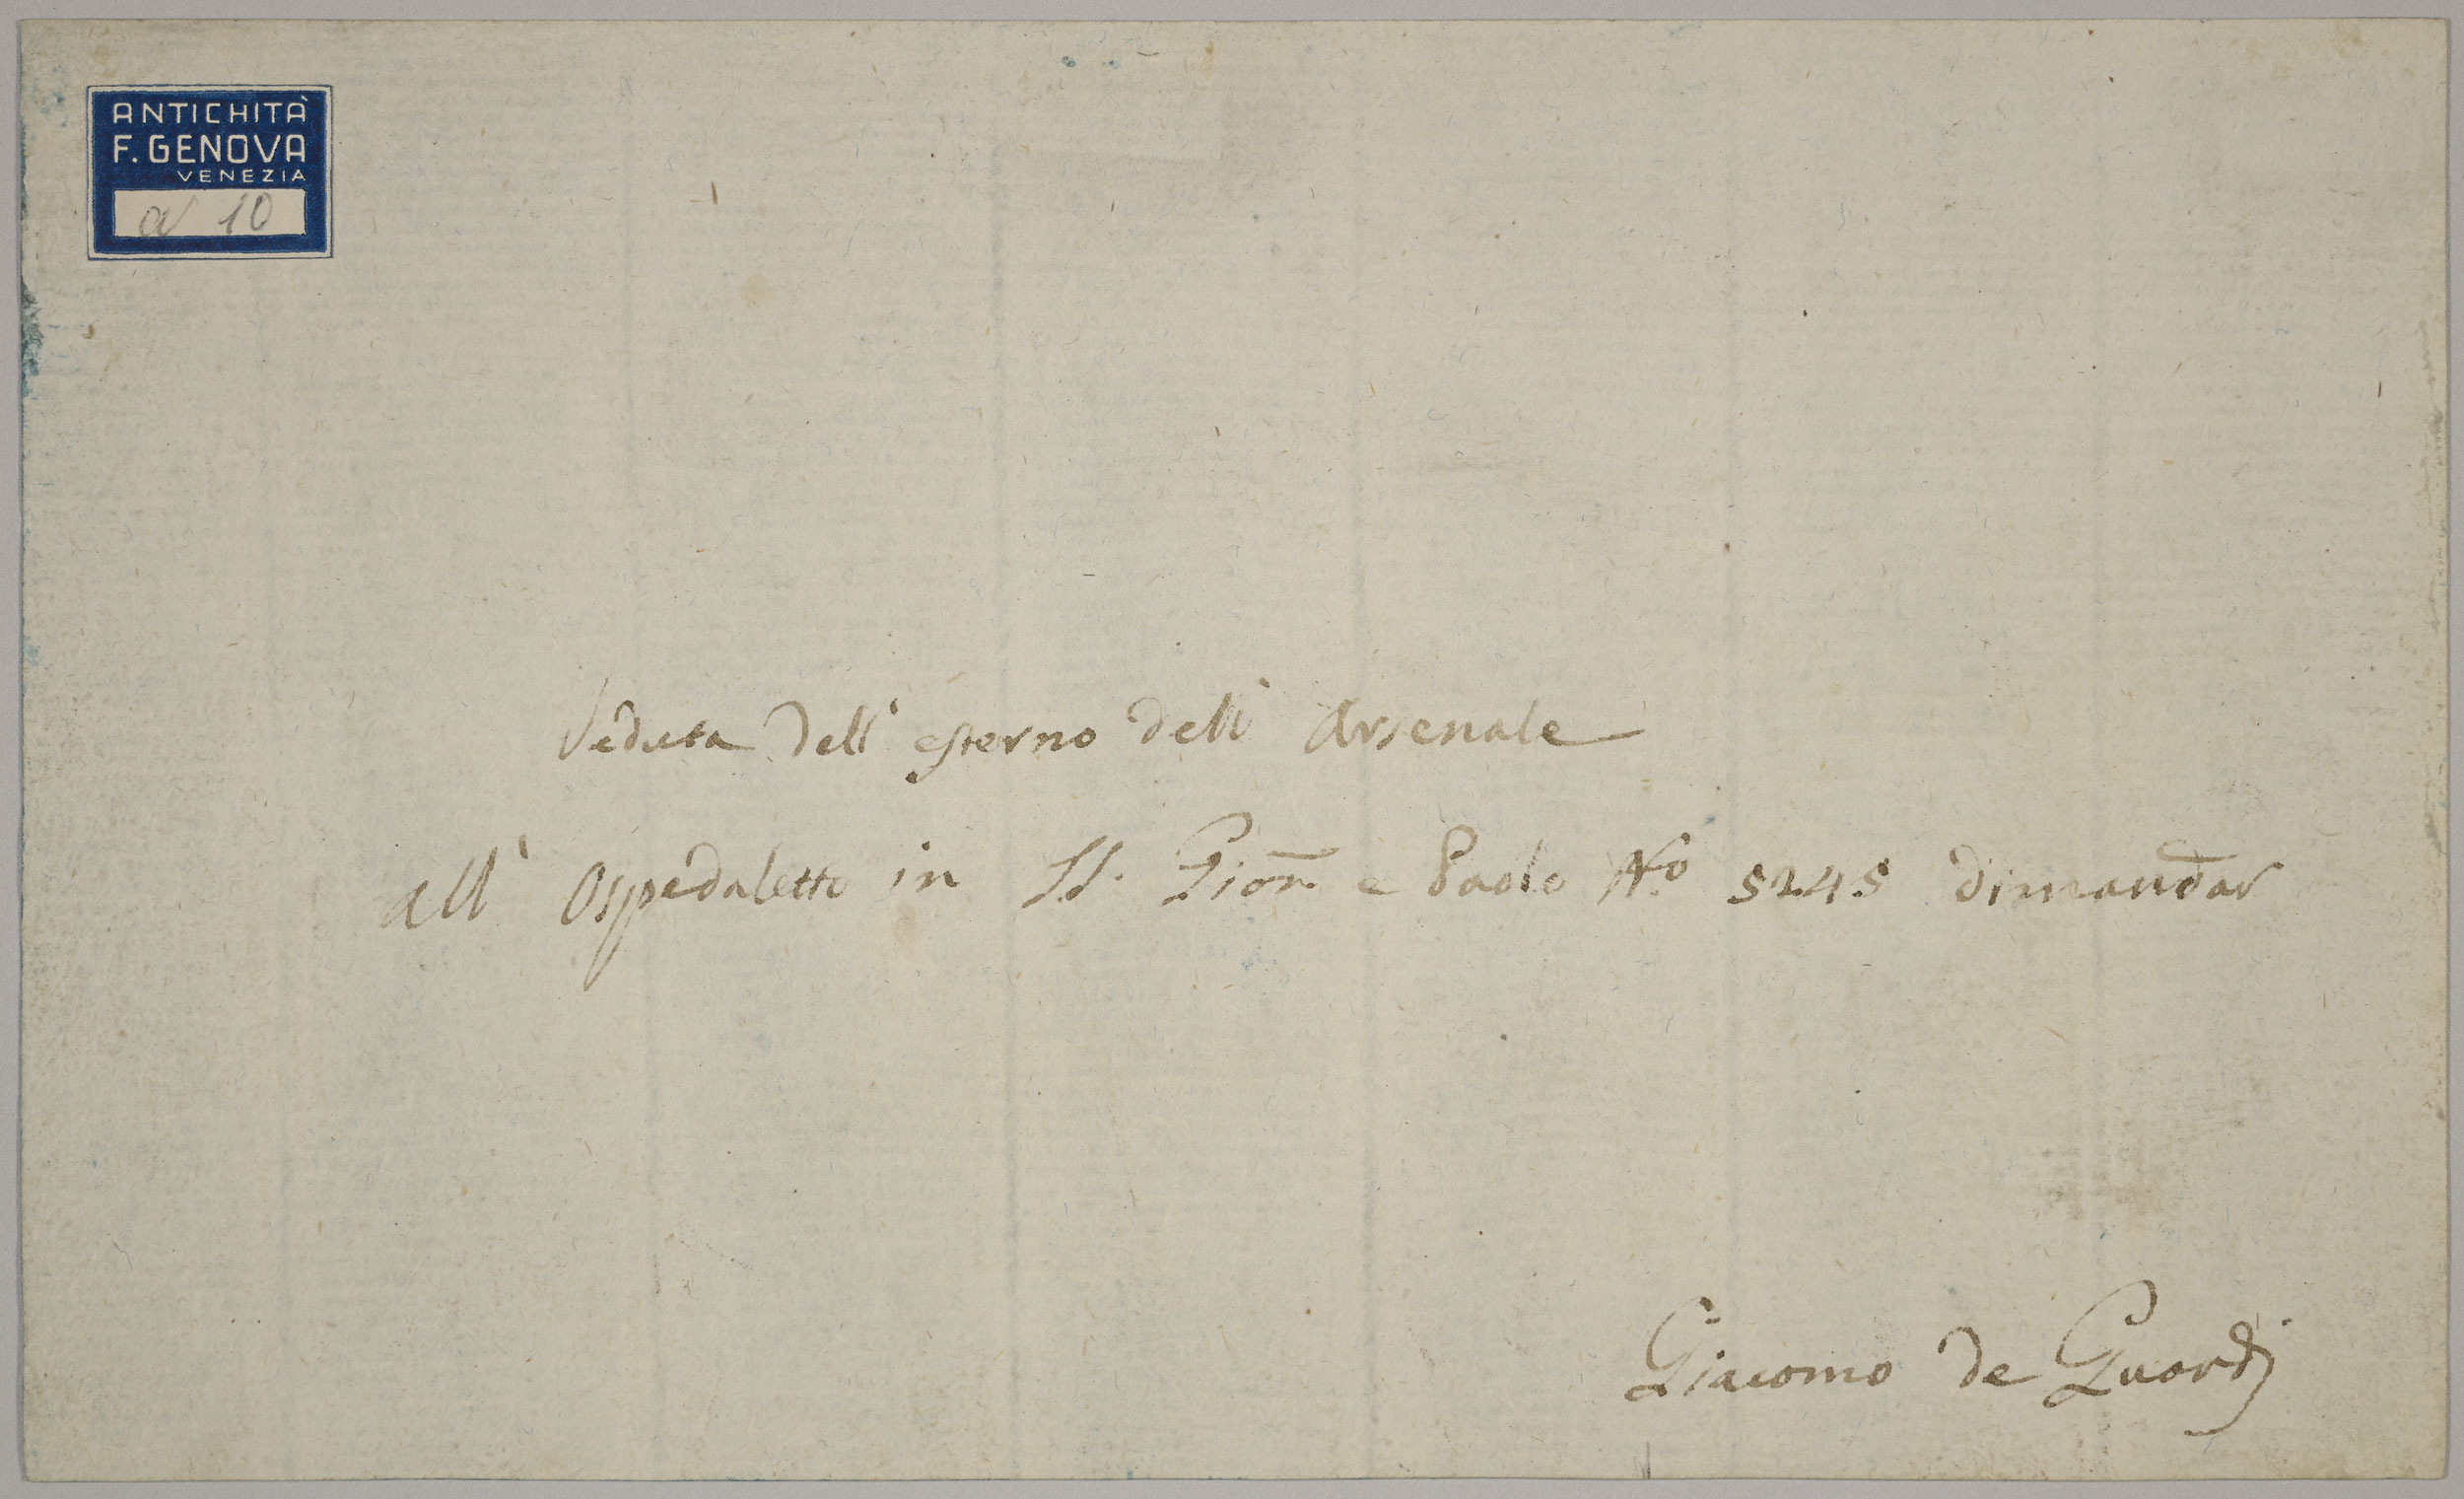 ANTICHITÀ
F. GENOVA
VENEZIA
a 10
Veduta dell' esterno dell' Arsenale
all' Ospedaletto in SS. Gion̄ e Paolo No 5245 dimandar
Giacomo de Guardi